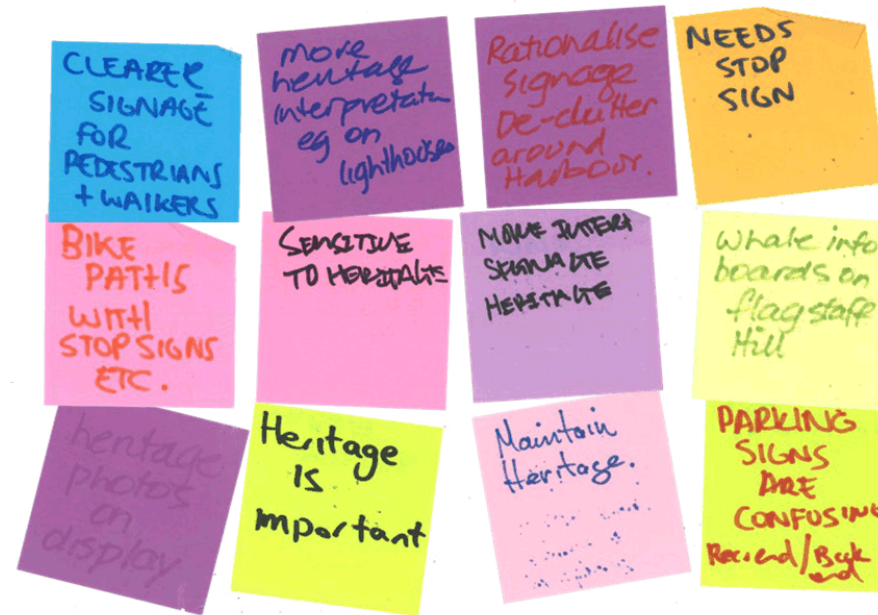 CLEARER
SIGNAGE
FOR
PEDESTRIANS
+ WALKERS
more
heritage
interpretatn
eg on
lighthouses
Rationalise
signage
De-clutter
around
Harbour.
NEEDS
STOP
SIGN
BIKE
PATHS
WITH
STOP SIGNS
ETC.
SENSITIVE
TO HERITAGE
MORE INTERP
SIGNAGE
HERITAGE
Whale info
boards on
flagstaff
Hill
heritage
photos
on
display
Heritage
IS
important
Maintain
Heritage.
PARKING
SIGNS
ARE
CONFUSING
end